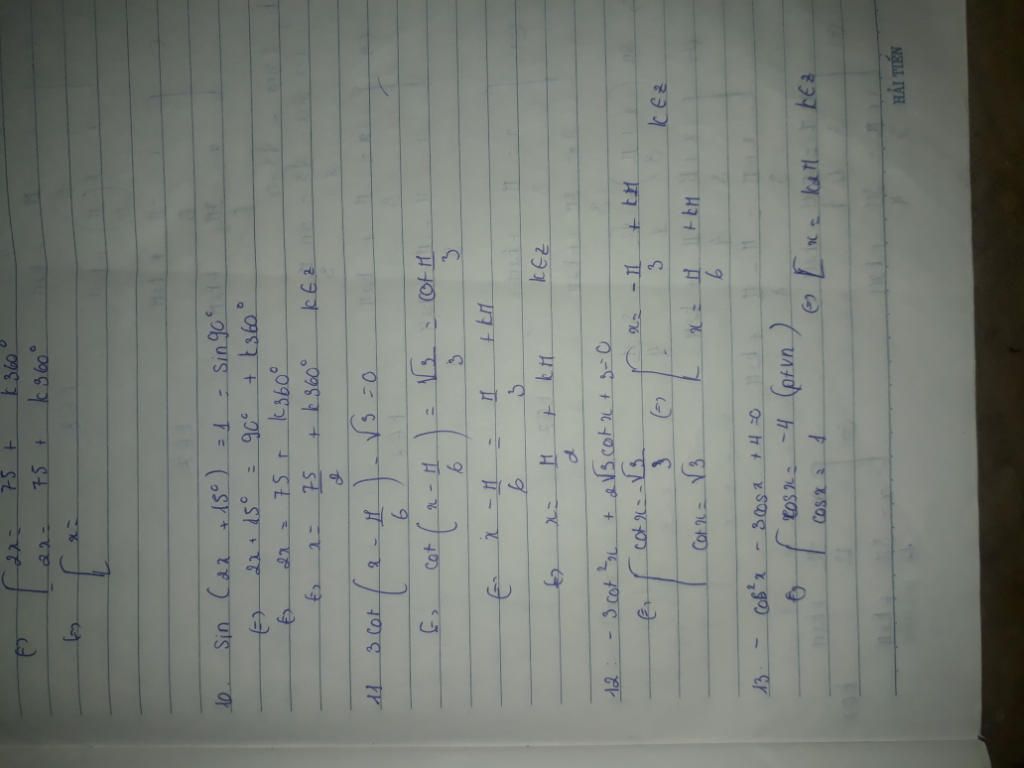 (=) [ 2x = 75 + k360°
2x = 75 + k360°
(=) [ x =
10. sin (2x + 15°) = 1 = sin90°
(=) 2x + 15° = 90° + k360°
(=) 2x = 75 + k360°
(=) x = 75/2 + k360° k∈Z
11 3cot (x - π/6) - √3 = 0
(=) cot (x - π/6) = √3/3 = cot π/3
(=) x - π/6 = π/3 + kπ
(=) x = π/2 + kπ k∈Z
12. - 3cot²x + 2√3cotx + 3 = 0
(=) [ cotx = -√3/3 (=) [ x = -π/3 + kπ k∈Z
cotx = √3 x = π/6 + kπ
13. - cos²x - 3cosx + 4 = 0
(=) [ cosx = -4 (ptvn) (=) [ x = k2π k∈Z
cosx = 1
HẢI TIẾN